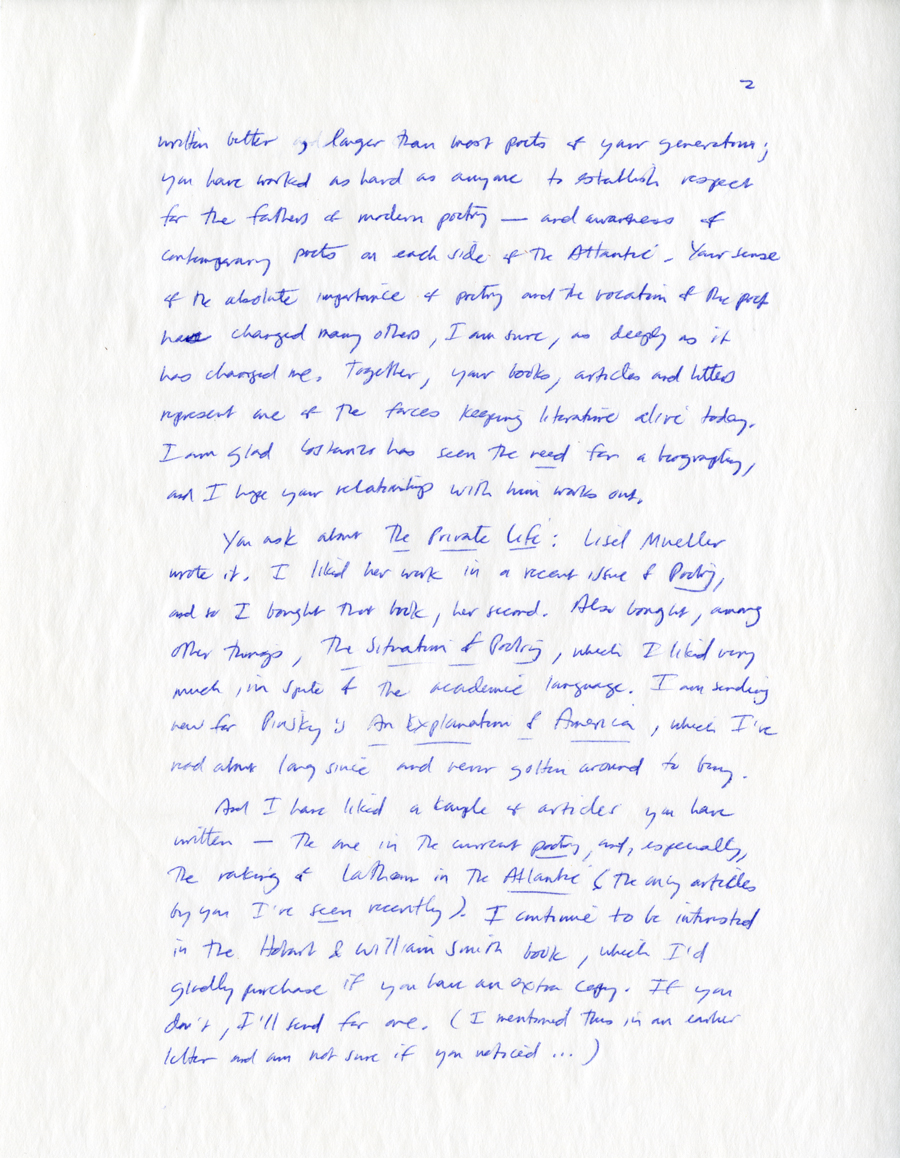 2
written better and longer than most poets of your generation;
you have worked as hard as anyone to establish respect
for the fathers of modern poetry — and awareness of
contemporary poets on each side of the Atlantic. Your sense
of the absolute importance of poetry and the vocation of the poet
have changed many others, I am sure, as deeply as it
has changed me. Together, your books, articles and letters
represent one of the forces keeping literature alive today.
I am glad Costanzo has seen the need for a biography,
and I hope your relationship with him works out.
You ask about The Private Life: Lisel Mueller
wrote it. I liked her work in a recent issue of Poetry,
and so I bought that book, her second. Also bought, among
other things, The Situation of Poetry, which I liked very
much, in spite of the academic language. I am sending
now for Pinsky's An Explanation of America, which I've
read about long since and never gotten around to buy.
And I have liked a couple of articles you have
written — the one in the current poetry, and, especially,
the raking of Latham in the Atlantic (the only articles
by you I've seen recently). I continue to be interested
in the Hobart & William Smith book, which I'd
gladly purchase if you have an extra copy. If you
don't, I'll send for one. (I mentioned this in an earlier
letter and am not sure if you noticed ...)